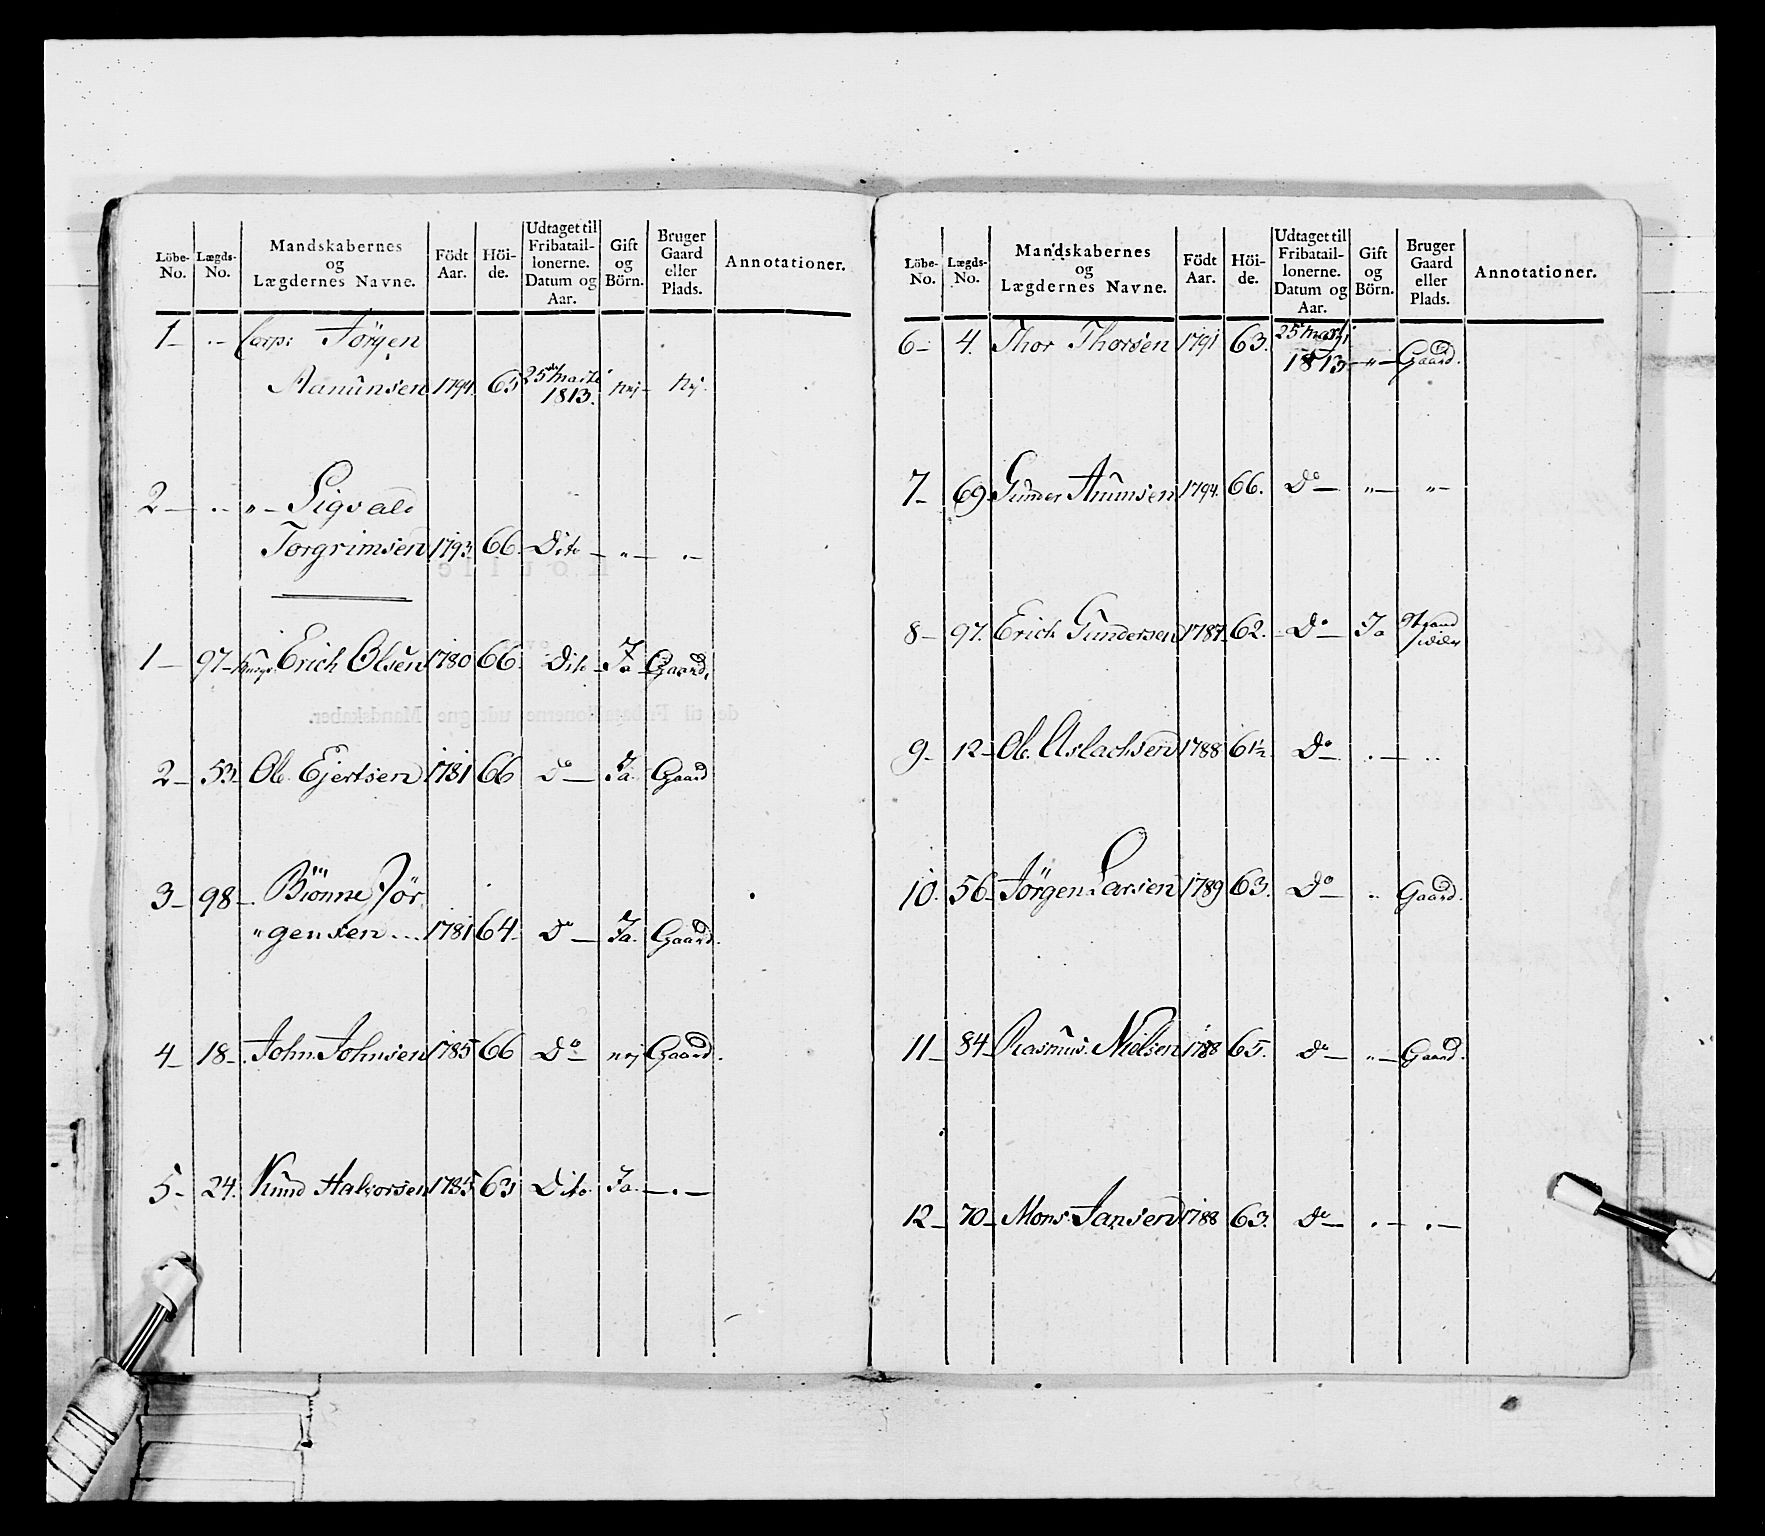 Löbe- No. Lægds- No. Mandskabernes og Lægdernes Navne. Födt Aar. Höi- de. Udtaget til Fribatail- lonerne. Datum og Aar. Gift og Börn. Bruger Gaard eller Plads. Annotationer.
1 – .. – Corp: Jörgen
Aanunsen 1794. 65 25de Martii 1813. nej – Nej.
2 – .. – „ – Sigvald
Torgrimsen 1793 66. Dito – „ – „ –
1 – 97 – Erich Olsen 1780 66. Dito – Ja Gaard.
2 – 53. Ole Ejertsen 1781 66 Do – Ja. Gaard
3 – 98 – Biönne Jör
„ gensen ... 1781 64 – Do – Ja. Gaard.
4 – 18 – John Johnsen 1785 66 Do – nej Gaard.
5 – 24. Knud Halvorsen 1785 63 Dito. Ja. – „ –
Löbe- No. Lægds- No. Mandskabernes og Lægdernes Navne. Födt Aar. Höi- de. Udtaget til Fribatail- lonerne. Datum og Aar. Gift og Börn. Bruger Gaard eller Plads. Annotationer.
6 – 4. Thor Thorsen 1791 63. 25de Martii 1813 – „ – Gaard.
7 – 69. Gunder Anunsen 1794. 66. Do – „ – „ –
8 – 97. Erich Gundersen 1787. 62. Do – Ja Strand sidder
9 – 12 – Ole Aslachsen 1788 61½ Do – . – ..
10. 56 – Jörgen Larsen 1789 63. Do – „ Gaard.
11 – 84 – Rasmus Nielsen 1788 65. Do – „ – Gaard.
12 – 70 – Mons Jansen 1788 63. Do – . – . –